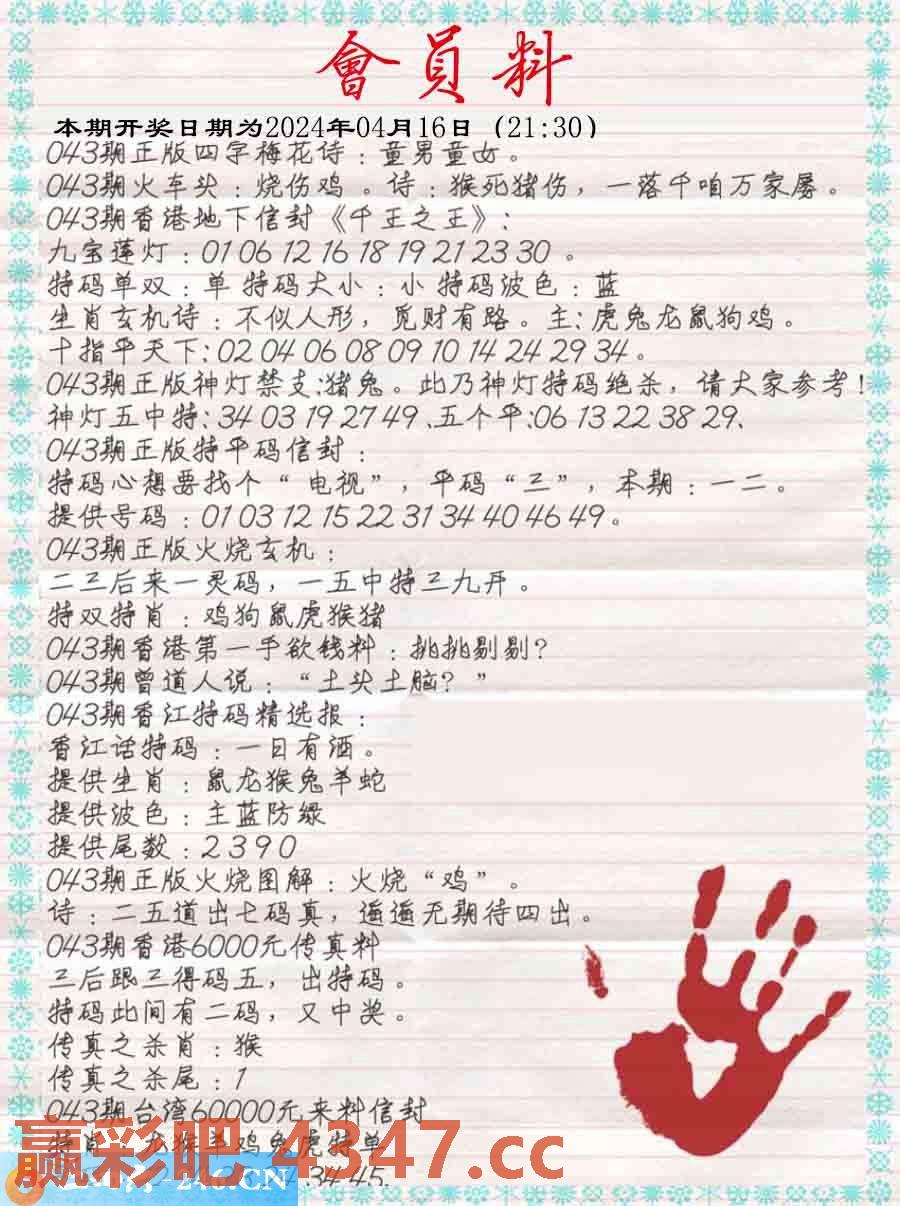 會員料
本期开奖日期为2024年04月16日（21:30）
043期正版四字梅花诗：童男童女。
043期火车头：烧伤鸡。诗：猴死猪伤，一落千咱万家屡。
043期香港地下信封《千王之王》：
九宝莲灯：01 06 12 16 18 19 21 23 30 。
特码单双：单 特码大小：小 特码波色：蓝
生肖玄机诗：不似人形，觅财有路。主：虎兔龙鼠狗鸡。
十指平天下：02 04 06 08 09 10 14 24 29 34。
043期正版神灯禁支：猪兔。此乃神灯特码绝杀，请大家参考！
神灯五中特：34 03 19 27 49、五个平：06 13 22 38 29、
043期正版特平码信封：
特码心想要找个“ 电视”，平码“三”，本期：一二。
提供号码：01 03 12 15 22 31 34 40 46 49。
043期正版火烧玄机：
二三后来一灵码，一五中特三九开。
特双特肖：鸡狗鼠虎猴猪
043期香港第一手欲钱料：挑挑剔剔？
043期曾道人说：“土头土脑？”
043期香江特码精选报：
香江话特码：一日有酒。
提供生肖：鼠龙猴兔羊蛇
提供波色：主蓝防绿
提供尾数：2 3 9 0
043期正版火烧图解：火烧“鸡”。
诗：二五道出七码真，遥遥无期待四出。
043期香港6000元传真料
三后跟三得码五，出特码。
特码此间有二码，又中奖。
传真之杀肖：猴
传真之杀尾：1
043期台湾60000元来料信封
特肖：龙猴羊鸡兔虎特单
34 45.
赢彩吧.4347.cc
246.CN